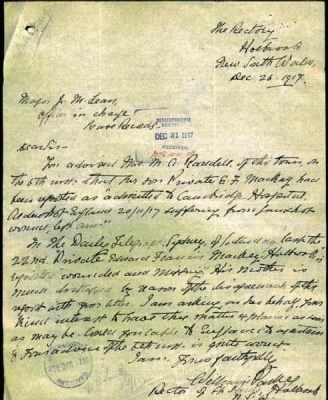 The Rectory
Holbrook
New South Wales
Dec 26. 1917.
Major J. M. Lean,
Officer in charge
Base Records.
DEC 31 1917
Dear Sir
You advised Mrs. M. A. of this town, on
the 5th inst. that her son Private E F Mackay had
been reported as admitted to Cambridge Hospital
Aldershot England 20/11/17 suffering from gunshot
wounds, left arm.
In the Daily Telegraph, Sydney, of Saturday last the
22nd. Private Edward Francis Mackay, Holbrook, is
reported wounded and missing. His mother is
much distressed by reason of the disagreement of this
report with your letter. I am asking, on her behalf, your
kind interest to have this matter explained as soon
as may be. Could you cable to
I am.
Yours faithfully
Rector of Holbrook
N.S.W.